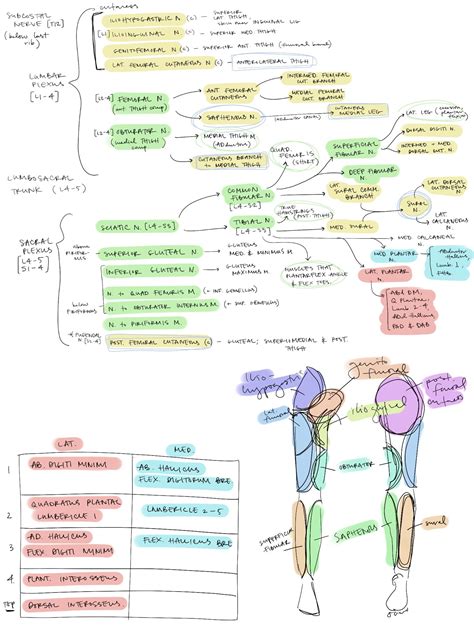 cutaneous
SUBCOSTAL NERVE [T12]
(below last rib)
ILIOHYPOGASTRIC N. (C) - SUPERIOR LAT THIGH
SKIN OVER INGUINAL LIG
[L1] ILIOINGUINAL N. (C) - SUPERIOR MED THIGH
GENITOFEMORAL N (C) - SUPERIOR ANT THIGH
LAT. FEMORAL CUTANEOUS N (C) - ANTEROLATERAL THIGH
LUMBAR PLEXUS [L1-4]
[L2-4] FEMORAL N
(ant THIGH comp)
ANT FEMORAL CUTANEOUS
INTERMED FEMORAL CUT. BRANCH
MEDIAL FEMORAL CUT. BRANCH
SAPHENOUS N
CUTANEOUS MEDIAL LEG
[L2-4] OBTURATOR N.
(medial THIGH comp
MEDIAL THIGH M. (ADDuctors)
CUTANEOUS BRANCH to MEDIAL THIGH
QUAD. FEMORIS (SHORT)
SUPERFICIAL FIBULAR N
LAT. LEG
DORSAL DIGITI N.
INTERMED + MED DORSAL CUT. N.
DEEP FIBULAR N.
LUMBOSACRAL TRUNK (L4-5)
COMMON FIBULAR N [L4-S2]
LAT SURAL COMM. BRANCH
LAT. DORSAL CUTANEOUS N.
SURAL N.
LAT CALCANEAL N.
SACRAL PLEXUS
L4-5
S1-4
SCIATIC N. [L4-S3]
TIBIAL N. [L4-S3]
TRUE HAMSTRINGS (POST. THIGH)
MED SURAL
MED CALCANEAL N.
above PIRIFORMIS
SUPERIOR GLUTEAL N.
GLUTEUS MED & MINIMUS M.
INFERIOR GLUTEAL N.
GLUTEUS MAXIMUS M.
MUSCLES THAT PLANTARFLEX ANKLE & FLEX TOES.
MED PLANTAR N.
LAT. PLANTAR N.
below PIRIFORMIS
N. to QUAD FEMORIS M. (+ INF. GEMELLUS)
N. to OBTURATOR INTERNUS M. (+ SUP. GEMELLUS)
N. to PIRIFORMIS M.
* PUDENDAL N
POST. FEMORAL CUTANEOUS (C) - GLUTEAL, SUPEROMEDIAL & POST. THIGH
Abd DM,
Q Plantae
Lumb 2-4
Add Hallucis
PAD & DAB
ilio-hypogastric
genito femoral
lat. femoral
ilioinguinal
post. femoral cutaneous
OBTURATOR
SUPERFICIAL FIBULAR
SAPHENOUS
sural
LAT.
MED.
1
AB. DIGITI MINIMI
AB. HALLICUS
FLEX. DIGITORUM BRE
2
QUADRATUS PLANTAE
LUMBERICLE 1
LUMBERICLE 2-5
3
AD. HALLICUS
FLEX DIGITI MINIMI
FLEX. HALLICUS BRE
4
PLANT. INTEROSSEUS
TOP
DORSAL INTEROSSEUS